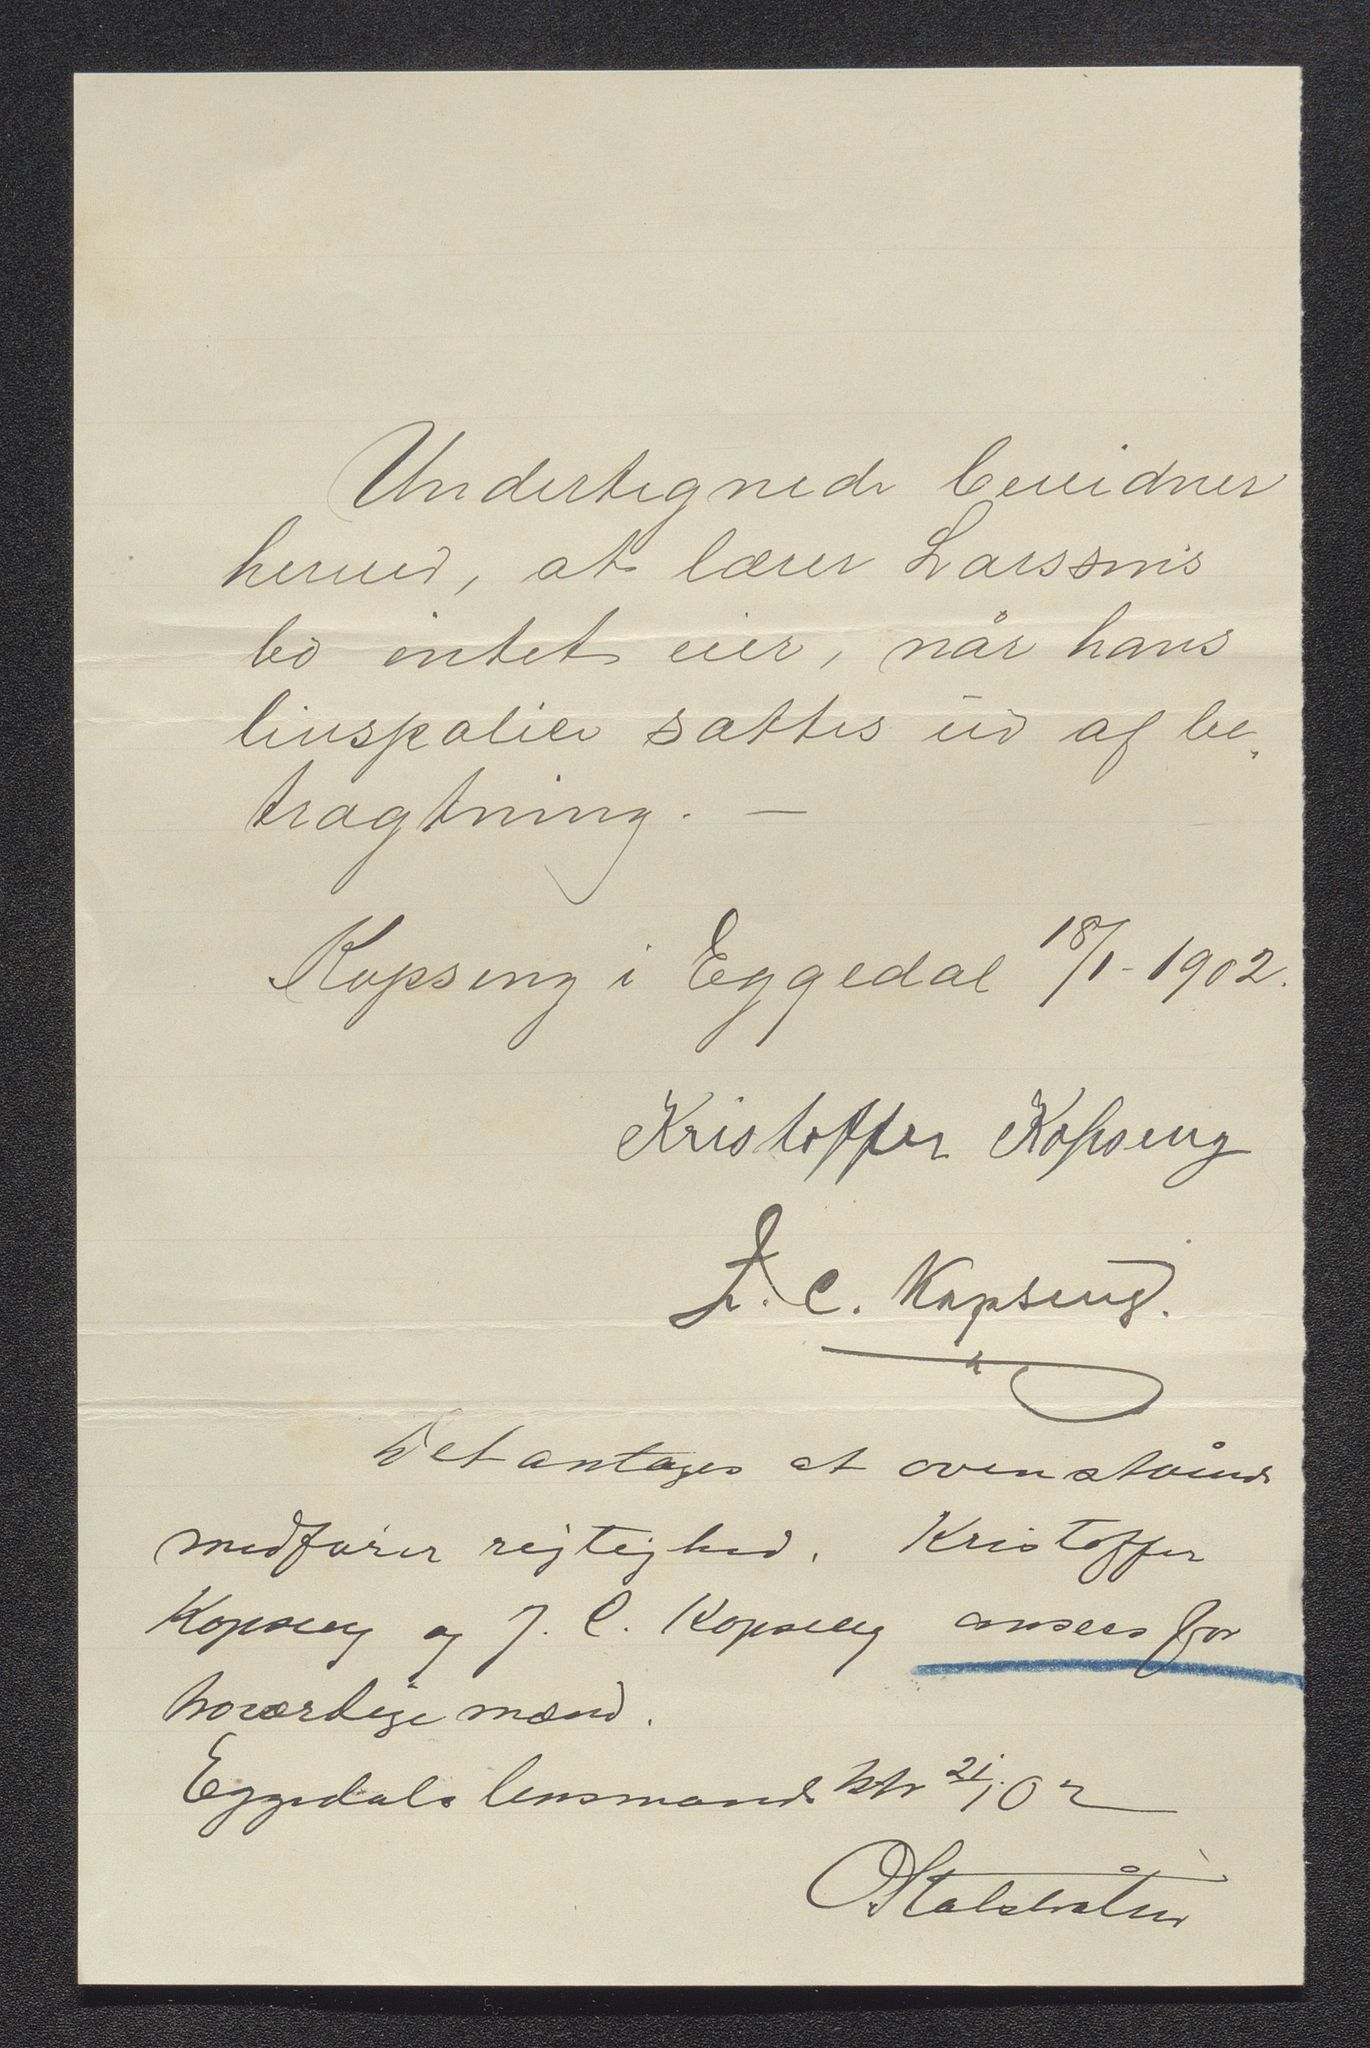 Undertegnede bevidner
herved, at lærer Larssens
bo intet eier, når hans
livspolice sættes ud af be-
tragtning. —
Kopseng i Eggedal 18/1 - 1902.
Kristoffer Kopseng
J. C. Kopseng.
Det antages at ovenstående
medfører rigtighed. Kristoffer
Kopseng og J. C. Kopseng ansees for
troværdige mænd.
Eggedals lensmand ktr 21/1 02